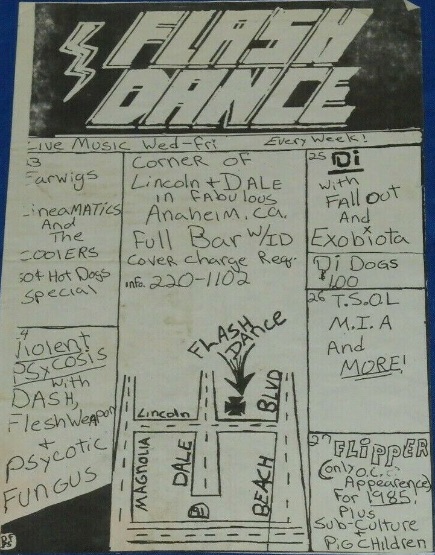 FLASH
DANCE
Live Music Wed-Fri Every Week!
3
Earwigs
LineaMATICS
And
The
COOLERS
50¢ Hot Dogs
Special
4
Violent
PSYCOSIS
with
DASH,
FleshWeapon
+
PSYCOTIC
FUNGUS
Corner of
Lincoln + DALE
in Fabulous
Anaheim, Ca.
Full Bar w/ID
Cover Charge Req.
info. 220-1102
FLASH
DANCE
Lincoln
MAGNOLIA
DALE
BEACH
BLVD
25 Di
with
Fall Out
And
Exobiota
Di Dogs
$1.00
26 T.S.O.L
M.I.A
And
MORE!
27 FLIPPER
(only O.C.
Appearence)
For 1985.
Plus
Sub-Culture
+
Pig Children